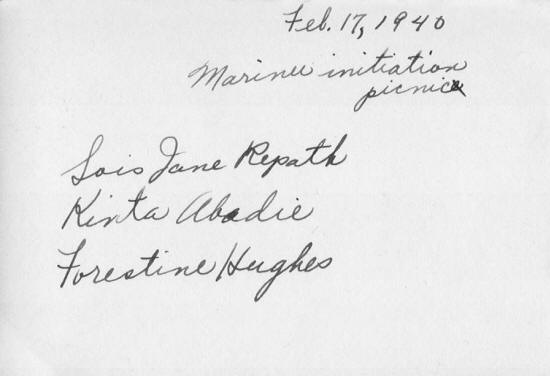 Feb. 17, 1940
Marinee initiation
picnic
Lois Jane Repath
Kinta Abadie
Forestine Hughes